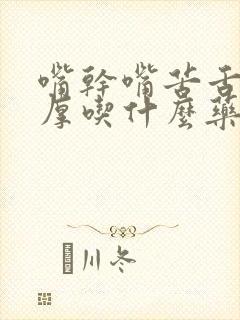 嘴幹嘴苦舌
厚喫什麼藥
川冬